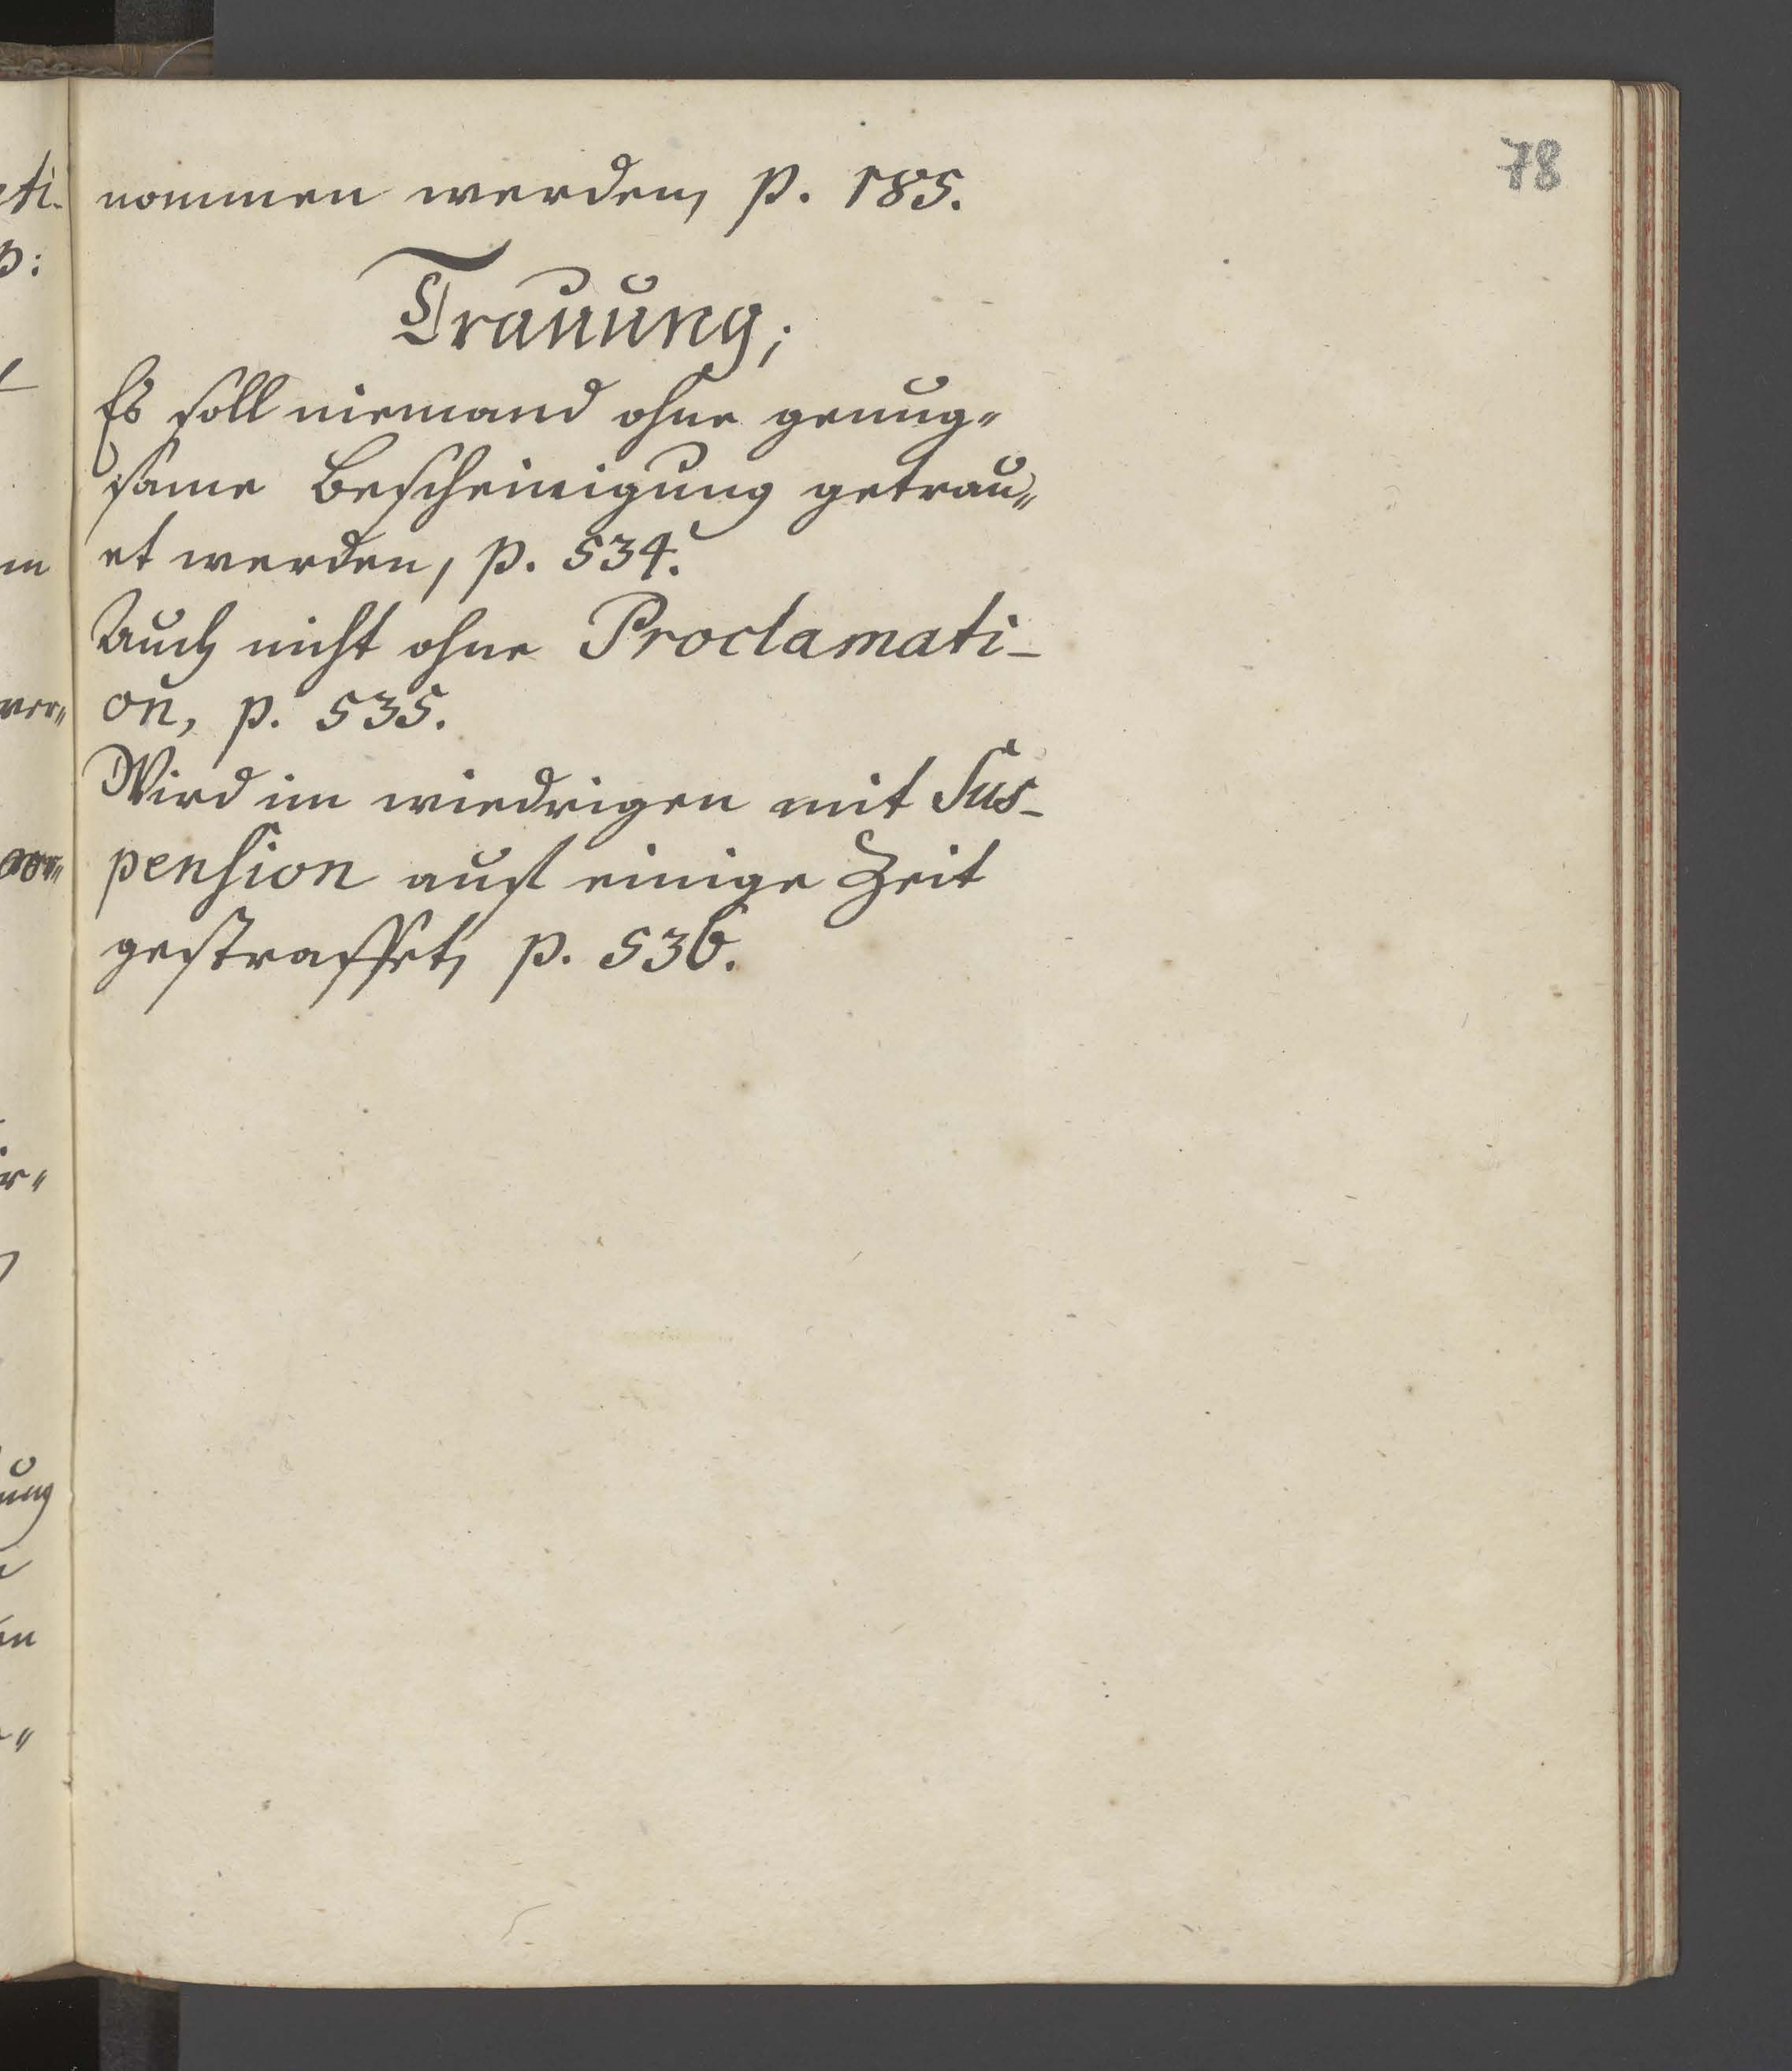 78
nommen werden, p. 185.
Trauung;
Es soll niemand ohne genug„
same Bescheinigung getrau„
et werden, p. 534.
Auch nicht ohne Proclamati-
on, p. 535.
Wird im wiedrigen mit Sus-
pension auf einige Zeit
gestraffet, p. 536.